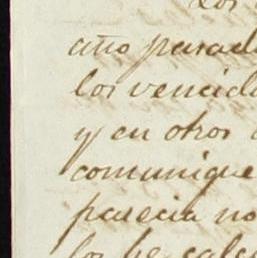 Los
año pasado
los vencid
y en otros
comunique
parecia no
los he calc